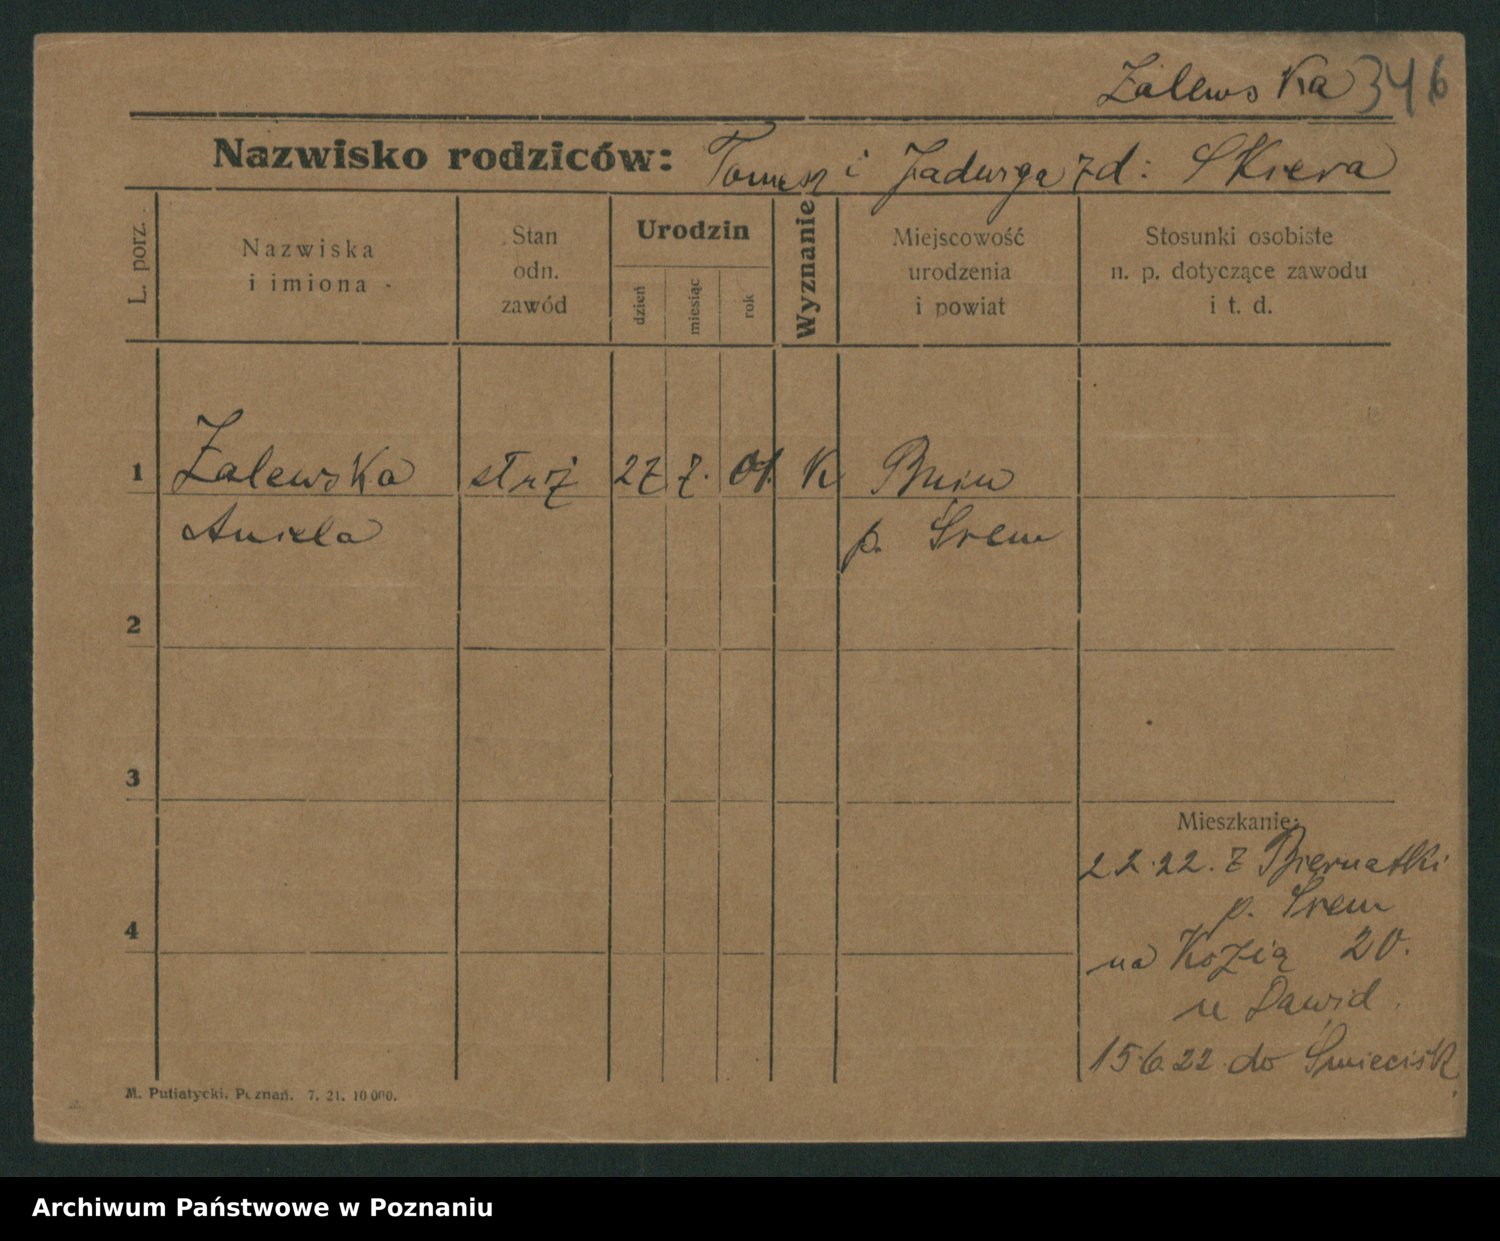 Zalewska 346
Nazwisko rodziców: Tomasz i Jadwiga zd: Skiera
L. porz.
Nazwiska
i imiona
Stan
odn.
zawód
Urodzin
dzień
miesiąc
rok
Wyznanie
Miejscowość
urodzenia
i powiat
Stosunki osobiste
n. p. dotyczące zawodu
i t. d.
1 Zalewska 27 7. 01. K Bnin
Aniela p. Śrem
2
3
4
Mieszkanie:
22.22. z Biernatki
p. Śrem
na Kozią 20.
u Dawid.
15.6.22 do
M. Putiatycki. Poznań. 7. 21. 10 000.
Archiwum Państwowe w Poznaniu